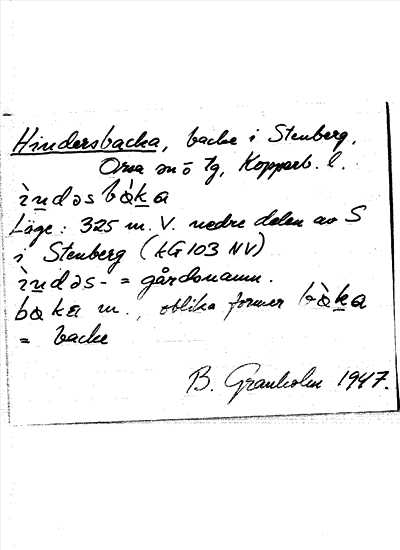 Hindersbacka, backe i Stenberg,
Orsa sn o tg, Kopparb. l.
ìndəs bàka
Läge: 325 m. V. nedre delen av S
i Stenberg (KG 103 NV)
ìndəs- = gårdsnamn.
baka m., oblika former bàka
= backe
B. Granholm 1947.